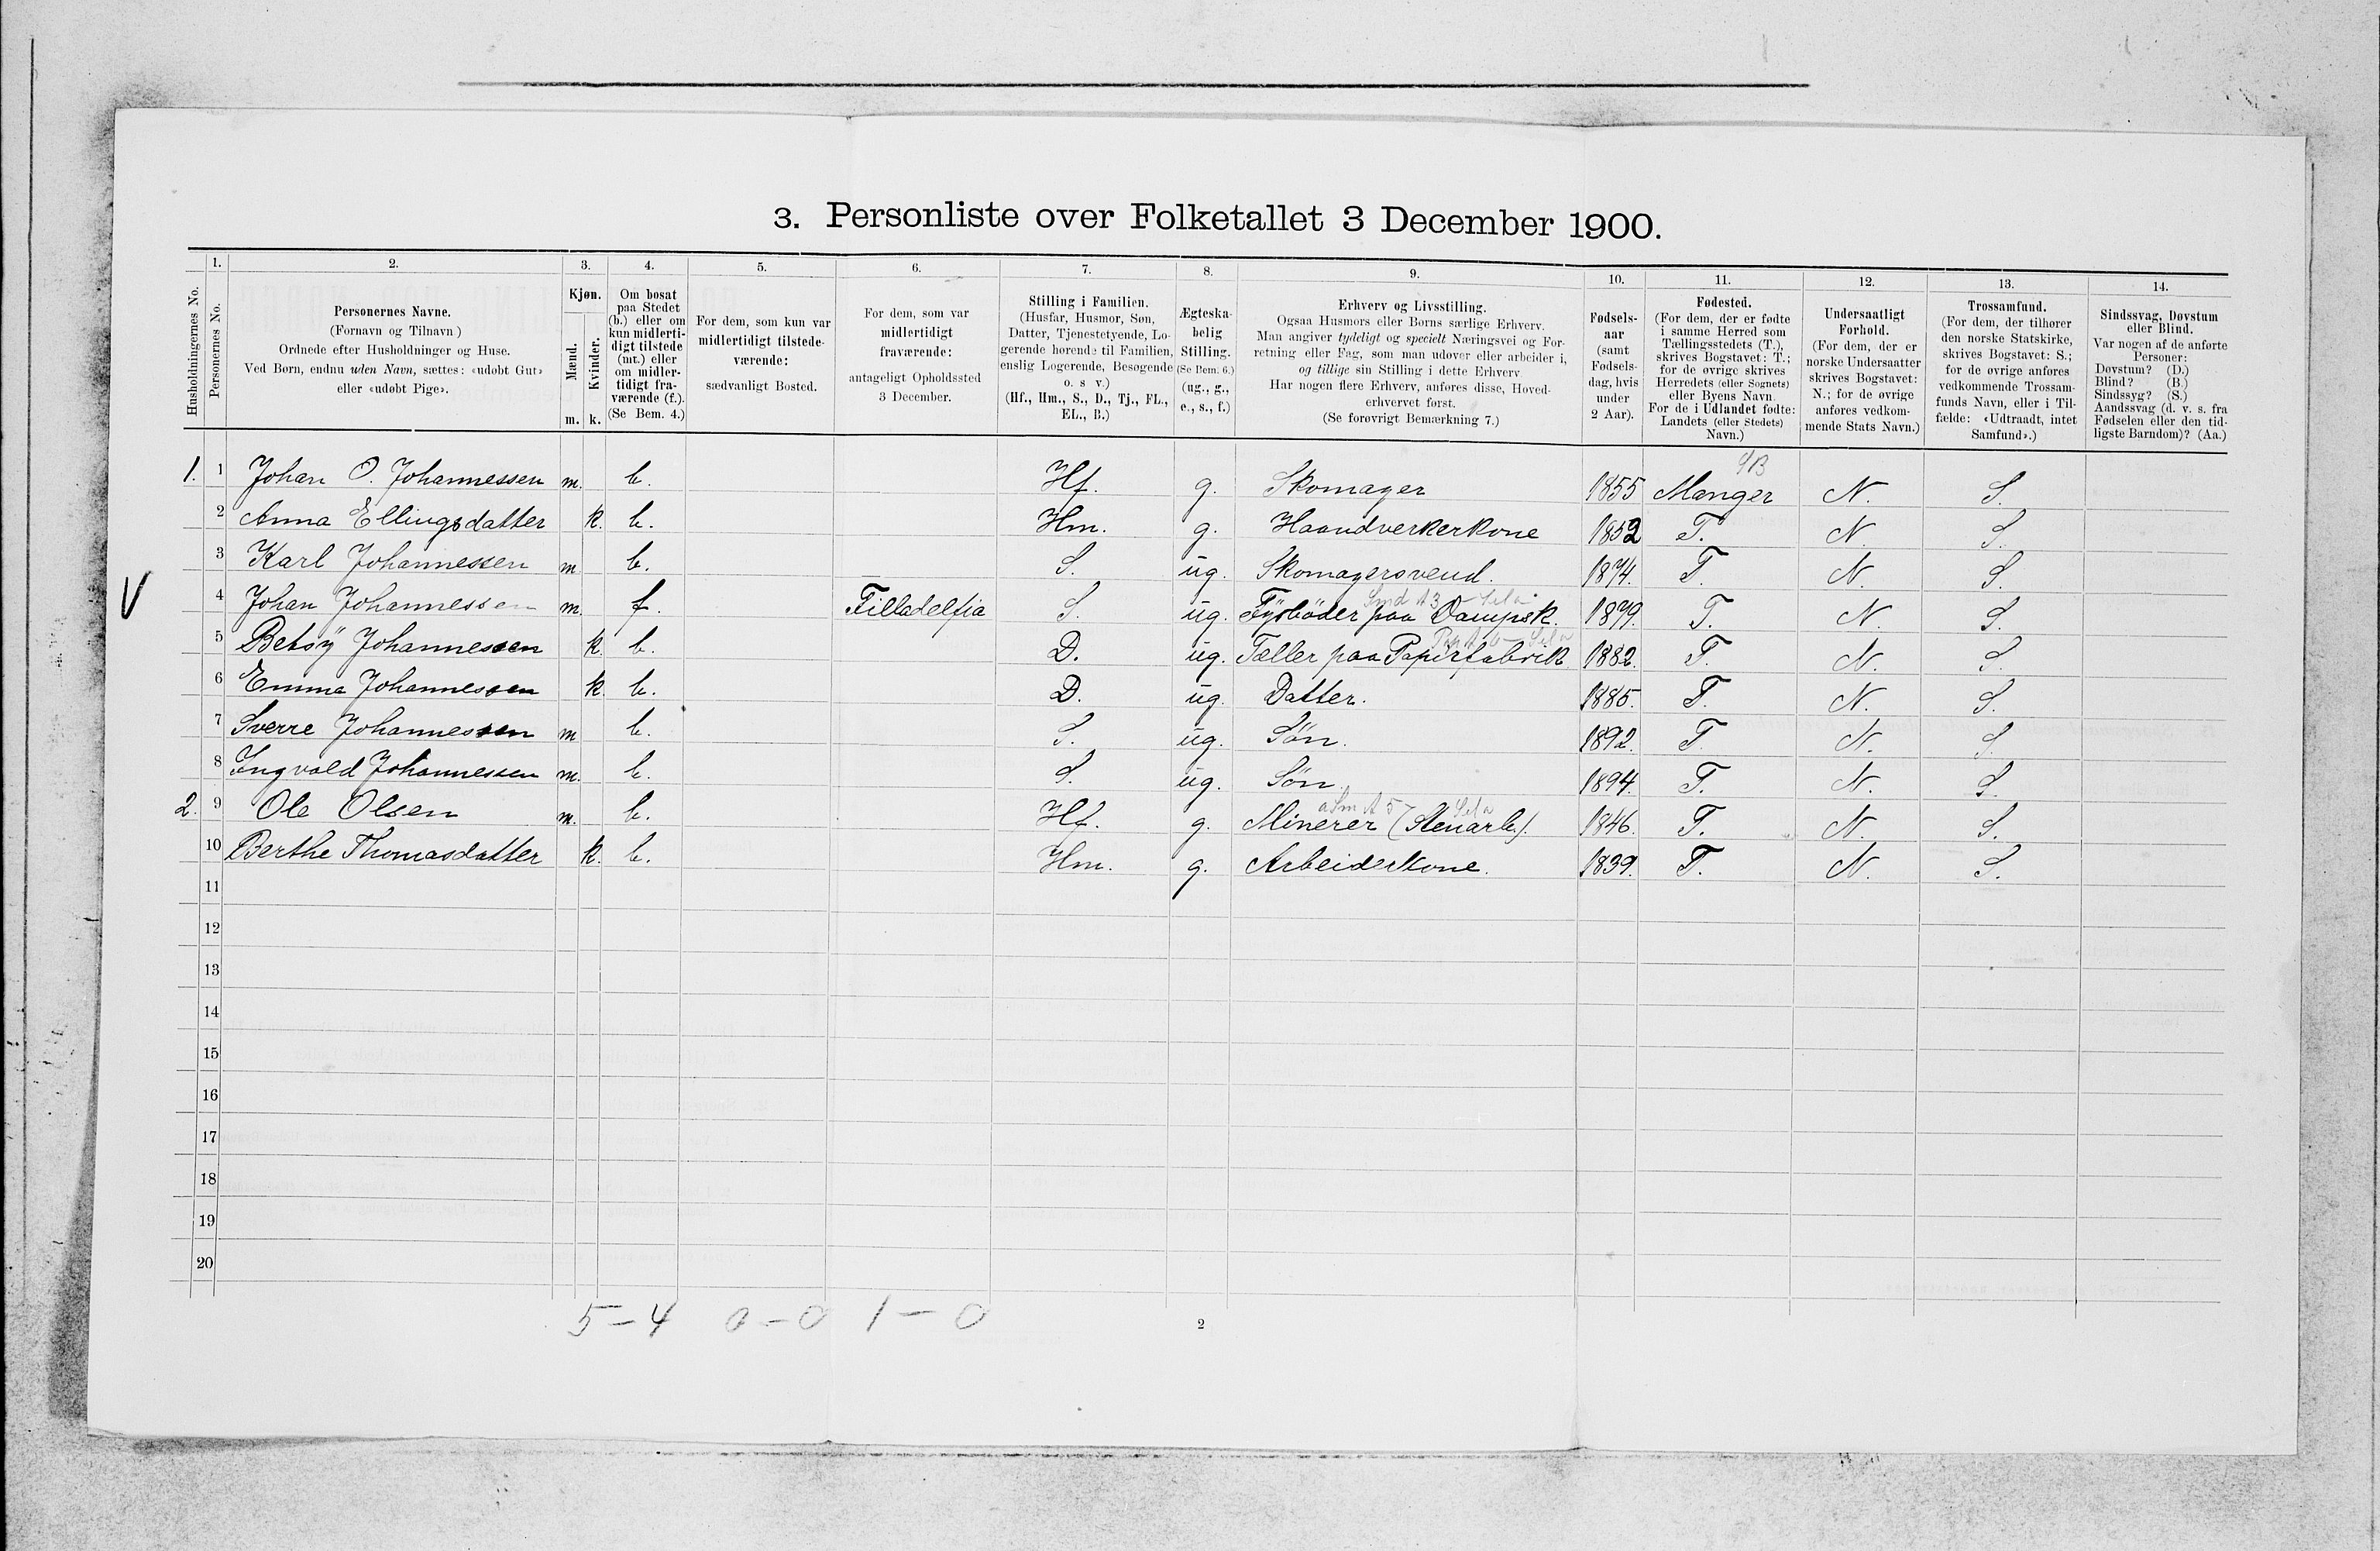 3. Personliste over Folketallet 3 December 1900.
Husholdningernes No.
1.
Personernes No.
2.
Personernes Navne.
(Fornavn og Tilnavn)
Ordnede efter Husholdninger og Huse.
Ved Børn, endnu uden Navn, sættes: «udøbt Gut»
eller «udøbt Pige».
3.
Kjøn.
Mænd.
Kvinder.
m. k.
4.
Om bosat
paa Stedet
(b.) eller om
kun midlerti-
digt tilstede
(mt.) eller
om midler-
tidigt fra-
værende (f.).
(Se Bem. 4.)
5.
For dem, som kun var
midlertidigt tilstede-
værende:
sædvanligt Bosted.
6.
For dem, som var
midlertidigt
fraværende:
antageligt Opholdssted
3 December.
7.
Stilling i Familien.
(Husfar, Husmor, Søn,
Datter, Tjenestetyende, Lo-
gerende hørende til Familien,
enslig Logerende, Besøgende
o. s v.)
(Hf., Hm., S., D., Tj., FL.,
EL., B.)
8.
Ægteska-
belig
Stilling.
(Se Bem. 6.)
(ug., g.,
e., s., f.)
9.
Erhverv og Livsstilling.
Ogsaa Husmors eller Børns særlige Erhverv.
Man angiver tydeligt og specielt Næringsvei og For-
retning eller Fag, som man udøver eller arbeider i,
og tillige sin Stilling i dette Erhverv.
Har nogen flere Erhverv, anføres disse, Hoved-
erhvervet først.
(Se forøvrigt Bemærkning 7.)
10.
Fødsels-
aar
(samt
Fødsels-
dag, hvis
under
2 Aar).
11.
Fødested.
(For dem, der er fødte
i samme Herred som
Tællingsstedets (T.),
skrives Bogstavet: T.;
for de øvrige skrives
Herredets (eller Sognets)
eller Byens Navn.
For de i Udlandet fødte:
Landets (eller Stedets)
Navn.)
12.
Undersaatligt
Forhold.
(For dem, der er
norske Undersaatter
skrives Bogstavet:
N.; for de øvrige
anføres vedkom-
mende Stats Navn.)
13.
Trossamfund.
(For dem, der tilhører
den norske Statskirke,
skrives Bogstavet: S.;
for de øvrige anføres
vedkommende Trossam-
funds Navn, eller i Til-
fælde: «Udtraadt, intet
Samfund».)
14.
Sindssvag, Døvstum
eller Blind.
Var nogen af de anførte
Personer:
Døvstum? (D.)
Blind? (B.)
Sindssyg? (S.)
Aandssvag (d. v. s. fra
Fødselen eller den tid-
ligste Barndom)? (Aa.)
1. 1 Johan O. Johannessen m. b. Hf. g. Skomager 1855 Manger N. S.
2 Anna Ellingsdatter k. b. Hm. g. Haandverkerkone 1852 T. N. S.
3 Karl Johannessen m b. S. ug. Skomagersvend. 1874. T. N. S.
V 4 Johan Johannessen m. f. Filladelfia S. ug. Fyrbøder paa Dampsk. 1879. T. N. S.
5 Betsÿ Johannessen k. b. D. ug. Tæller paa Papirfabrik 1882. T. N. S.
6 Emma Johannessen k. b. D. ug. Datter. 1885. T. N. S.
7 Sverre Johannessen m b. S. ug. Søn. 1892. T. N. S.
8 Ingvald Johannessen m. b. S. ug. Søn. 1894. T. N. S.
2. 9 Ole Olsen m. b. Hf. g. Minerer (Stenarb.). 1846. T. N. S.
10 Berthe Thomasdatter k. b. Hm. g. Arbeiderkone. 1839. T. N. S.
11
12
13
14
15
16
17
18
19
20
5 – 4 0 – 0 1 – 0
2